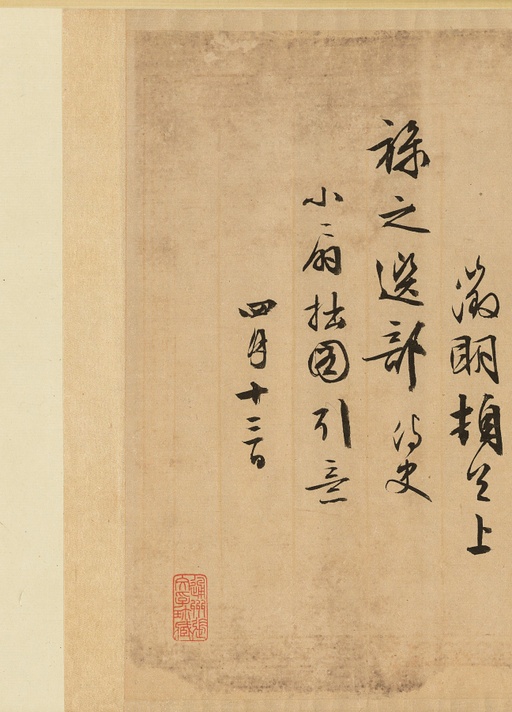 徵明頓首上
祿之選部侍史
小扇拙圖引意
四月十三日